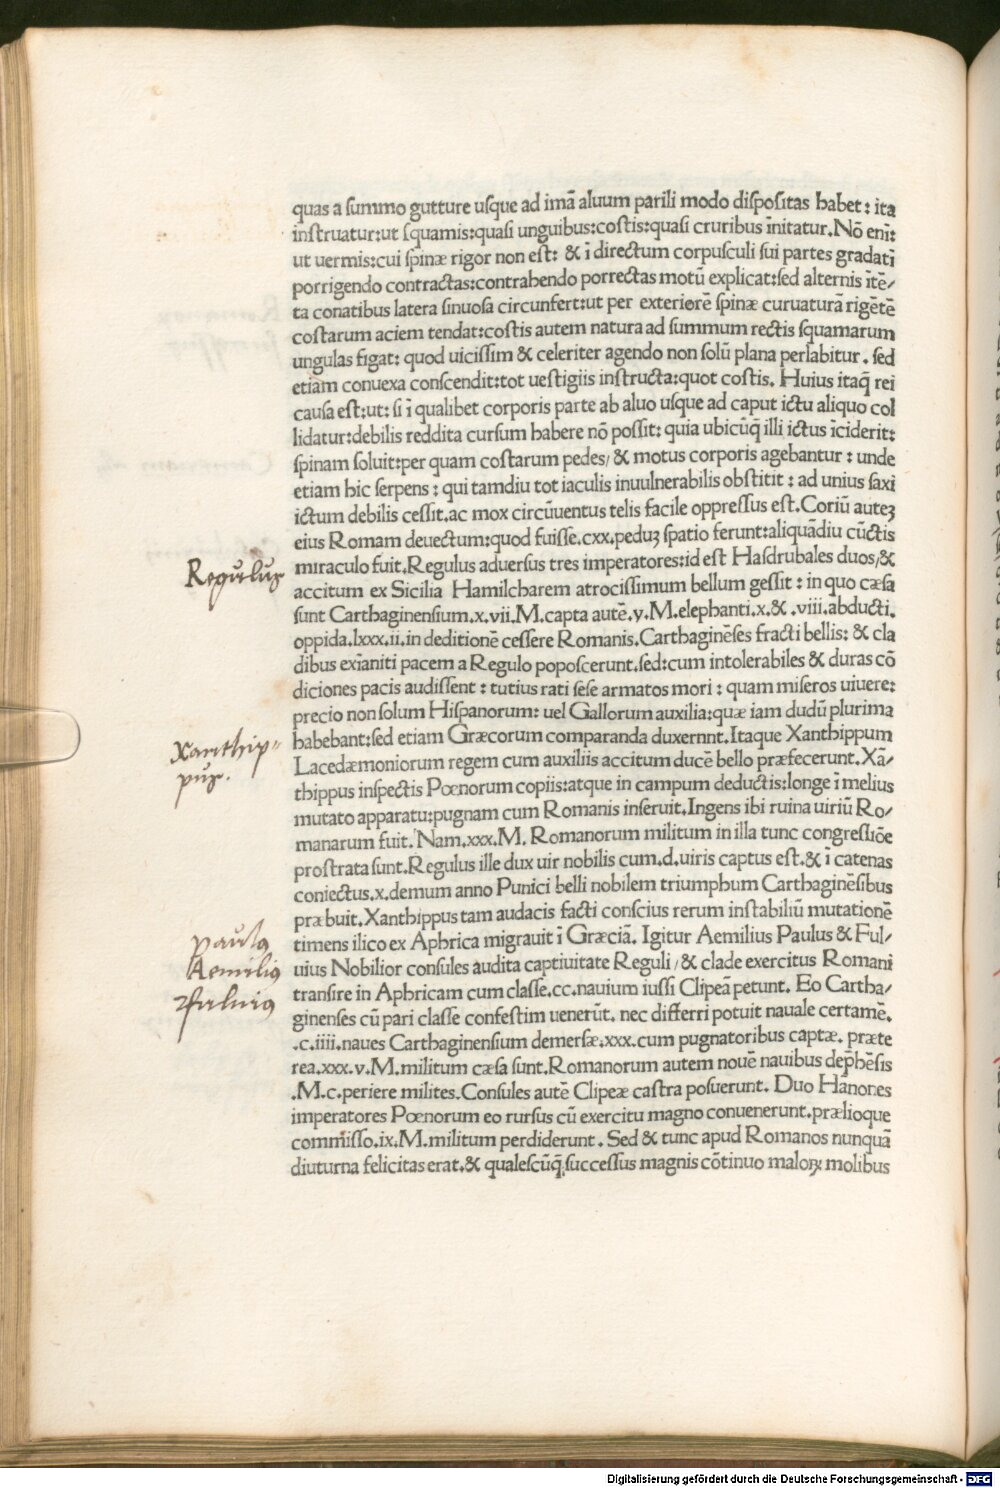 quas a ſummo gutture uſque ad imā aluum parili modo diſpoſitas habet: ita
inſtruatur:ut ſquamis:quaſi unguibus:coſtis:quaſi cruribus īnitatur. Nō enī:
ut uermis:cui ſpinæ rigor non eſt: & ī directum corpuſculi ſui partes gradatī
porrigendo contractas:contrahendo porrectas motū explicat:ſed alternis ītē/
ta conatibus latera ſinuoſa circunfert:ut per exteriorē ſpinæ curuaturā rigētē
coſtarum aciem tendat:coſtis autem natura ad ſummum rectis ſquamarum
ungulas figat: quod uiciſſim & celeriter agendo non ſolū plana perlabitur. ſed
etiam conuexa conſcendit:tot ueſtigiis inſtructa:quot coſtis. Huius itaq; rei
cauſa eſt:ut: ſi ī qualibet corporis parte ab aluo uſque ad caput ictu aliquo col
lidatur:debilis reddita curſum habere nō poſſit: quia ubicūq; illi ictus īciderit:
ſpinam ſoluit:per quam coſtarum pedes/ & motus corporis agebantur: unde
etiam hic ſerpens: qui tamdiu tot iaculis inuulnerabilis obſtitit: ad unius ſaxi
ictum debilis ceſſit.ac mox circūuentus telis facile oppreſſus eſt. Coriū auteʒ
eius Romam deuectum:quod fuiſſe.cxx.peduʒ ſpatio ferunt:aliquādiu cūctis
miraculo fuit.Regulus aduerſus tres imperatores:id eſt Haſdrubales duos/&
accitum ex Sicilia Hamilcharem atrociſſimum bellum geſſit: in quo cæſa
ſunt Carthaginenſium.x.vii.M.capta autē.v.M.elephanti.x.&.viii.abducti.
oppida.lxxx.ii.in deditionē ceſſere Romanis.Carthaginēſes fracti bellis: & cla
dibus exīaniti pacem a Regulo popoſcerunt.ſed:cum intolerabiles & duras cō
diciones pacis audiſſent: tutius rati ſeſe armatos mori: quam miſeros uiuere:
precio non ſolum Hiſpanorum: uel Gallorum auxilia:quæ iam dudū plurima
habebant:ſed etiam Græcorum comparanda duxernnt.Itaque Xanthippum
Lacedæmoniorum regem cum auxiliis accitum ducē bello præfecerunt.Xā/
thippus inſpectis Pœnorum copiis:atque in campum deductis:longe ī melius
mutato apparatu:pugnam cum Romanis inſeruit.Ingens ibi ruina uiriū Ro/
manarum fuit. Nam.xxx.M. Romanorum militum in illa tunc congreſſiōe
proſtrata ſunt.Regulus ille dux uir nobilis cum.d.uiris captus eſt.& ī catenas
coniectus.x.demum anno Punici belli nobilem triumphum Carthaginēſibus
præbuit.Xanthippus tam audacis facti conſcius rerum inſtabiliū mutationē
timens ilico ex Aphrica migrauit ī Græciā. Igitur Aemilius Paulus & Ful/
uius Nobilior conſules audita captiuitate Reguli/& clade exercitus Romani
tranſire in Aphricam cum claſſe.cc.nauium iuſſi Clipeā petunt. Eo Cartha/
ginenſes cū pari claſſe confeſtim uenerūt. nec differri potuit nauale certamē.
.c.iiii.naues Carthaginenſium demerſæ.xxx.cum pugnatoribus captæ. præte
rea.xxx.v.M.militum cæſa ſunt.Romanorum autem nouē nauibus dep̄hēſis
.M.c.periere milites.Conſules autē Clipeæ caſtra poſuerunt. Duo Hanones
imperatores Pœnorum eo rurſus cū exercitu magno conuenerunt.prælioque
commiſſo.ix.M.militum perdiderunt. Sed & tunc apud Romanos nunquā
diuturna felicitas erat.& qualeſcūq; ſucceſſus magnis cōtinuo maloꝝ molibus
Regulus
Xanthip=
pus.
paulꝰ
Aemiliꝰ
Fuluiꝰ
Digitalisierung gefördert durch die Deutsche Forschungsgemeinschaft - DFG